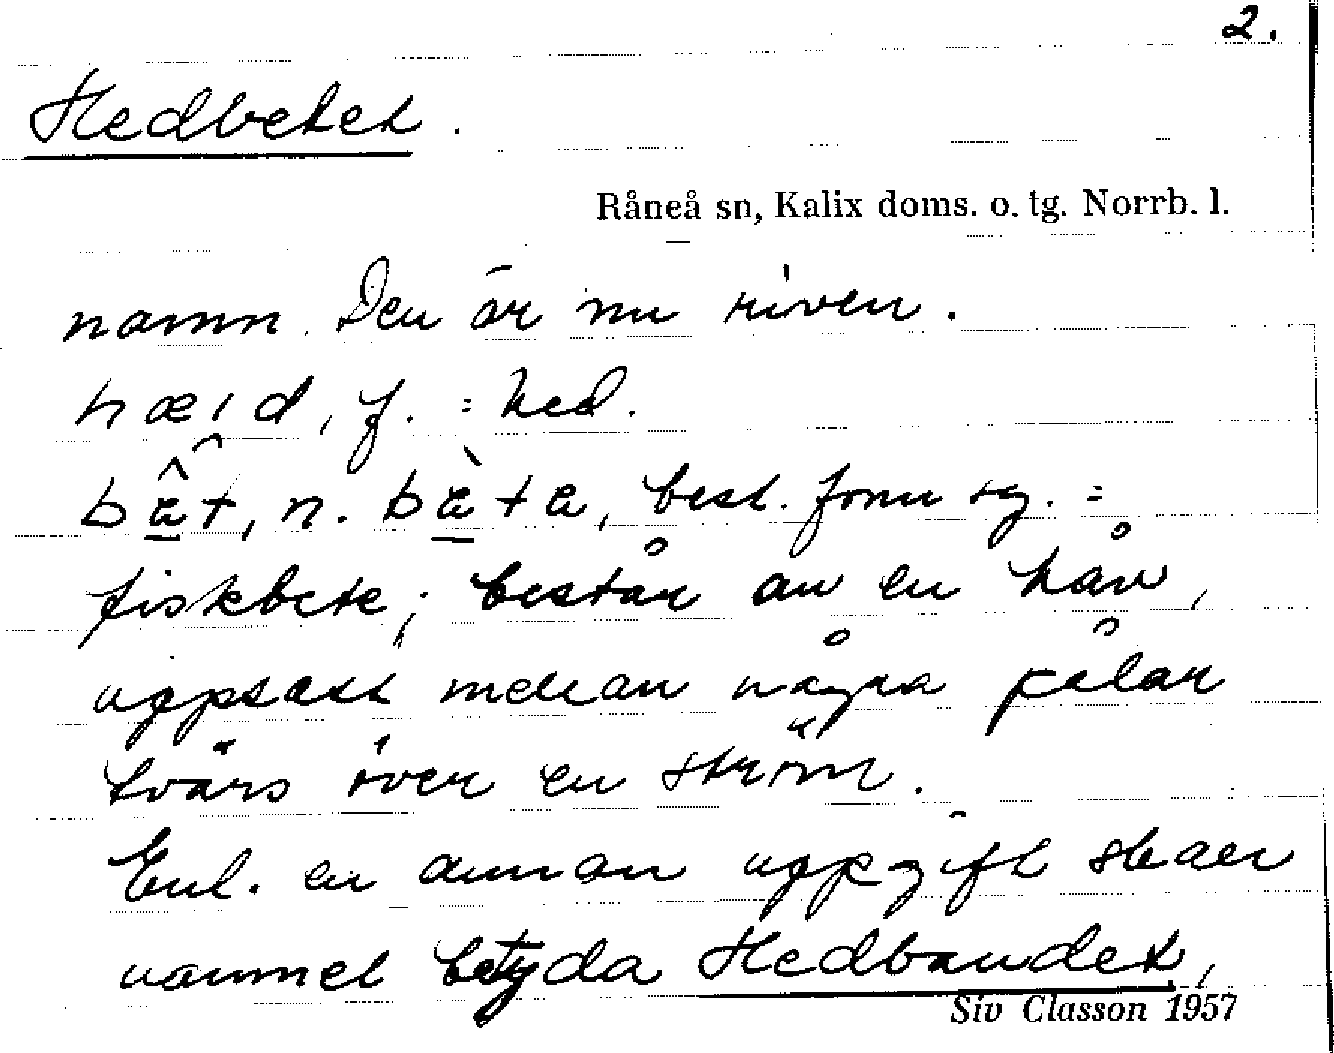 2.
Hedbetet.
Råneå sn, Kalix doms. o. tg. Norrb. l.
namn. Den är nu riven.
hæid, f. = hed.
bât, n. bàta, best. form sg. =
fiskbete; består av en håv,
uppsatt mellan några pålar
tvärs över en ström.
Enl. en annan uppgift skall
namnet betyda Hedbandet,
Siv Classon 1957